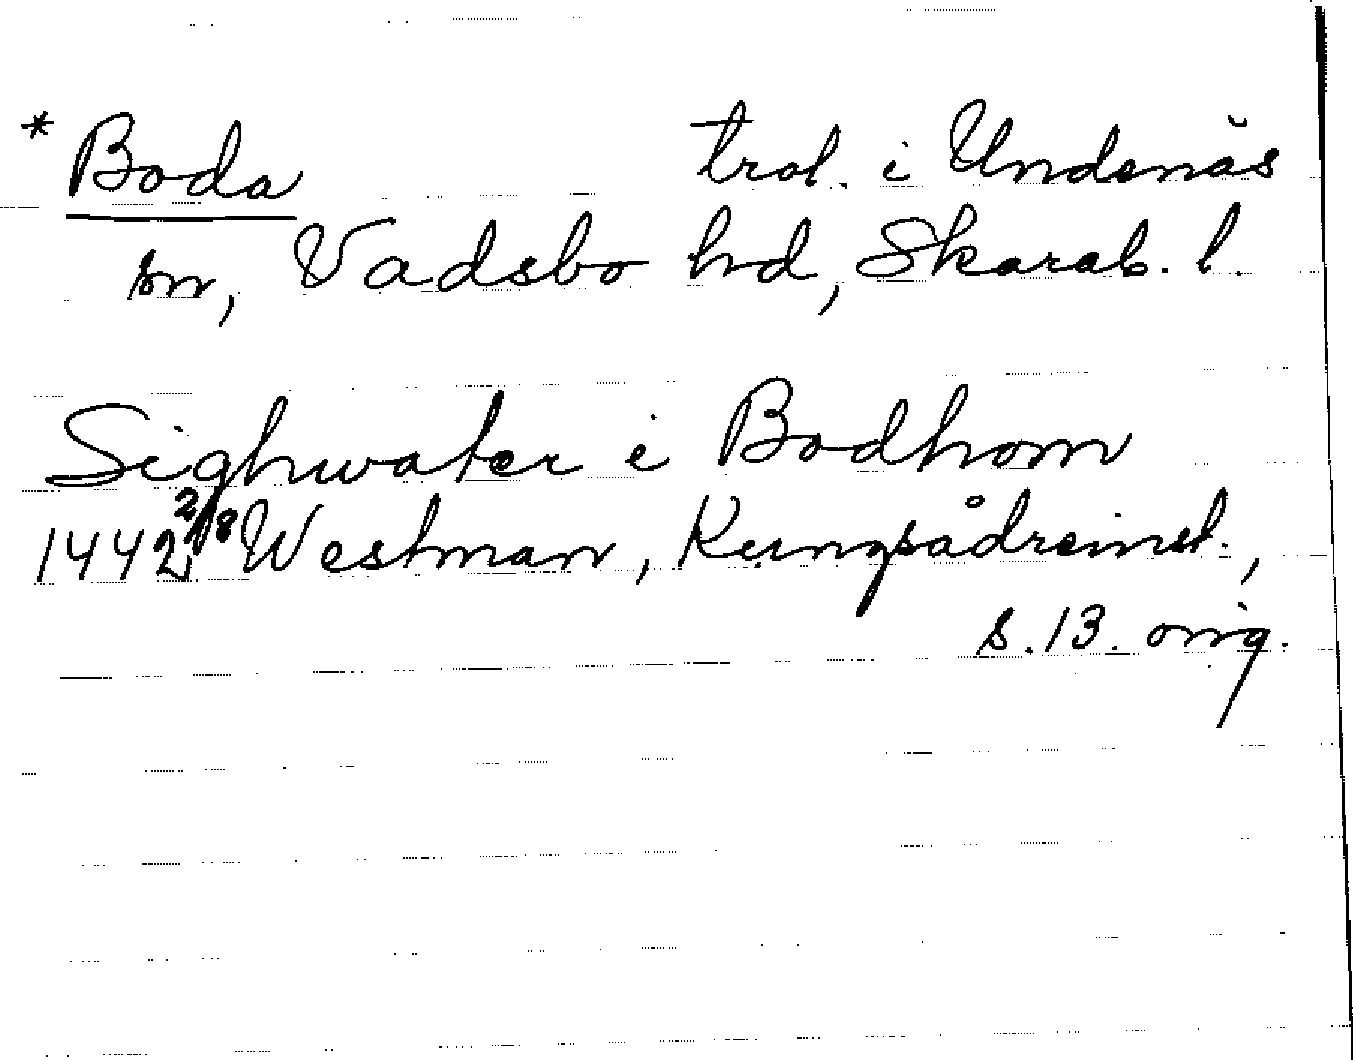 * Boda trol. i Undenäs
sn, Vadsbo hd, Skarab. l.
Sighwater i Bodhom
1442 2/8 Westman, Kungsådreinst.,
s. 13. orig.